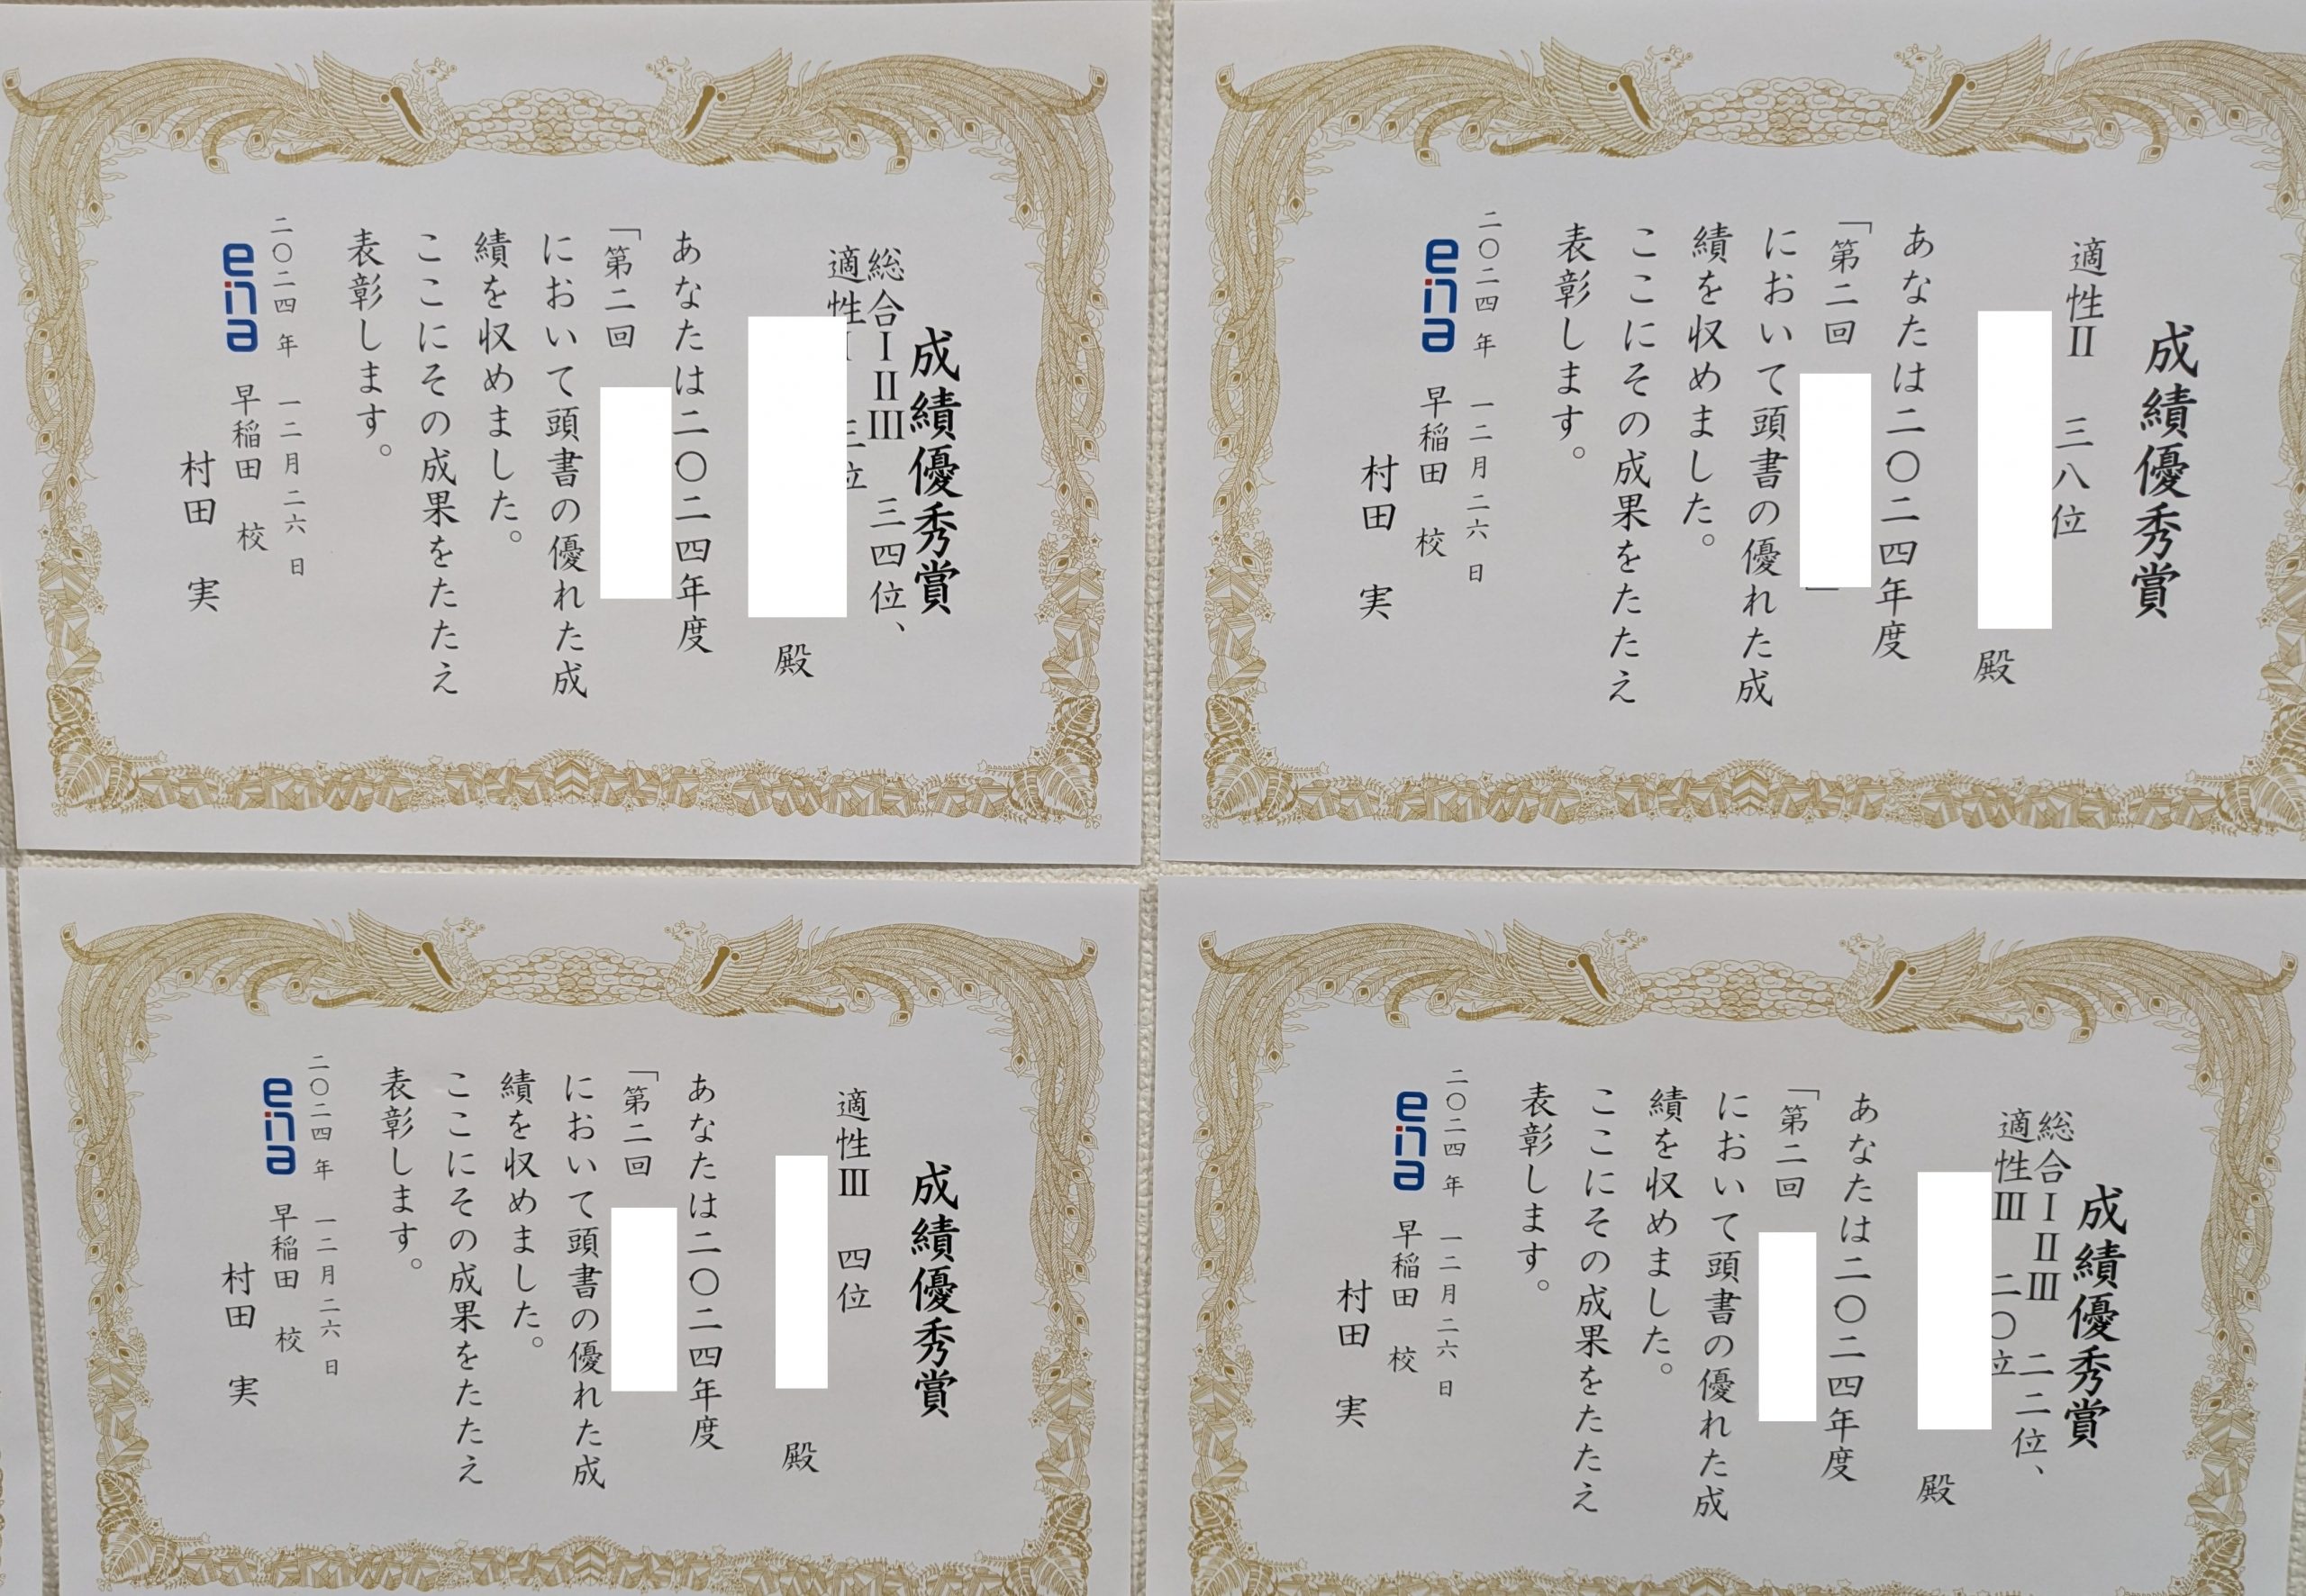 成績優秀賞
総合ⅠⅡⅢ 三四位、
適性Ⅰ 三位
殿
あなたは二〇二四年度
「第二回
において頭書の優れた成
績を収めました。
ここにその成果をたたえ
表彰します。
二〇二四年 一二月二六日
ena 早稲田 校
村田 実
成績優秀賞
適性Ⅱ 三八位
殿
あなたは二〇二四年度
「第二回 」
において頭書の優れた成
績を収めました。
ここにその成果をたたえ
表彰します。
二〇二四年 一二月二六日
ena 早稲田 校
村田 実
成績優秀賞
適性Ⅲ 四位
殿
あなたは二〇二四年度
「第二回
において頭書の優れた成
績を収めました。
ここにその成果をたたえ
表彰します。
二〇二四年 一二月二六日
ena 早稲田 校
村田 実
成績優秀賞
総合ⅠⅡⅢ 二二位、
適性Ⅲ 二〇位
殿
あなたは二〇二四年度
「第二回
において頭書の優れた成
績を収めました。
ここにその成果をたたえ
表彰します。
二〇二四年 一二月二六日
ena 早稲田 校
村田 実